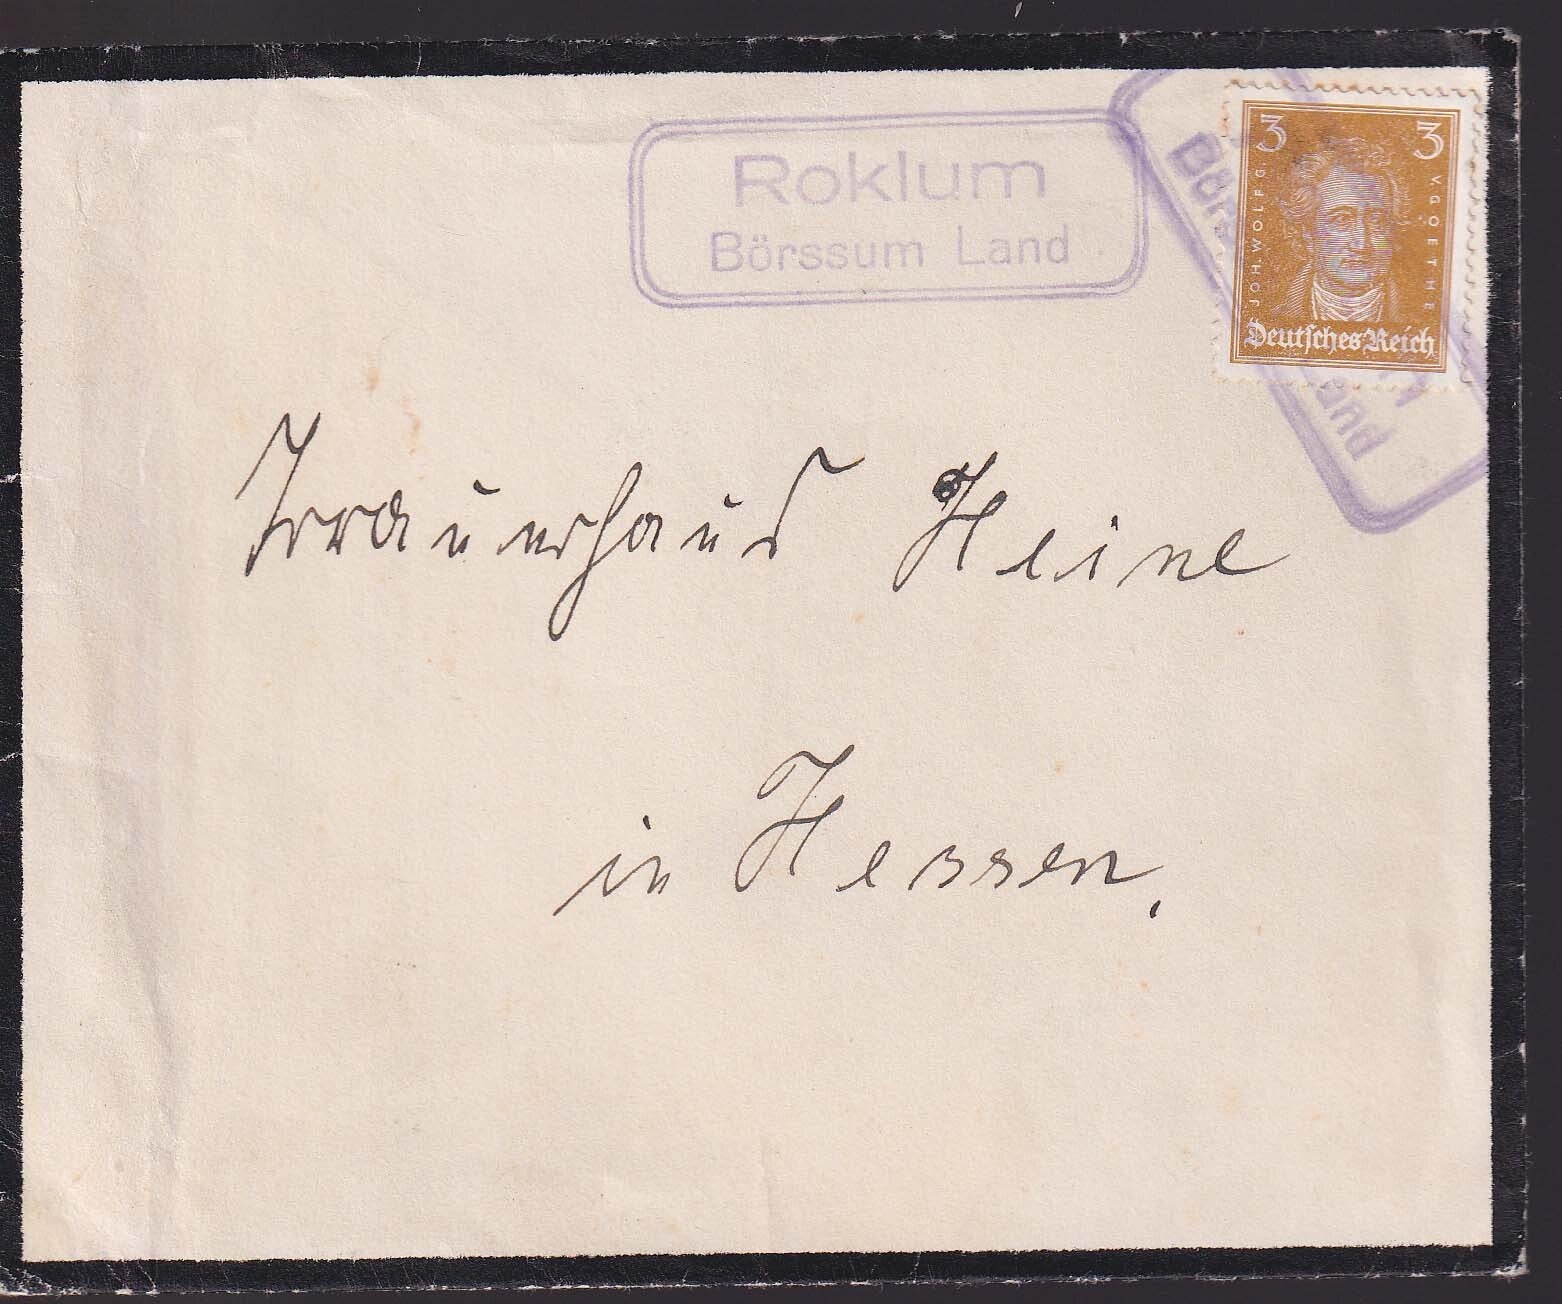 Roklum
Börssum Land
3 3
JOH. WOLFG. V. GOETHE
Deutsches Reich
Börs
and
Trauerhaus Heine
in Hessen.